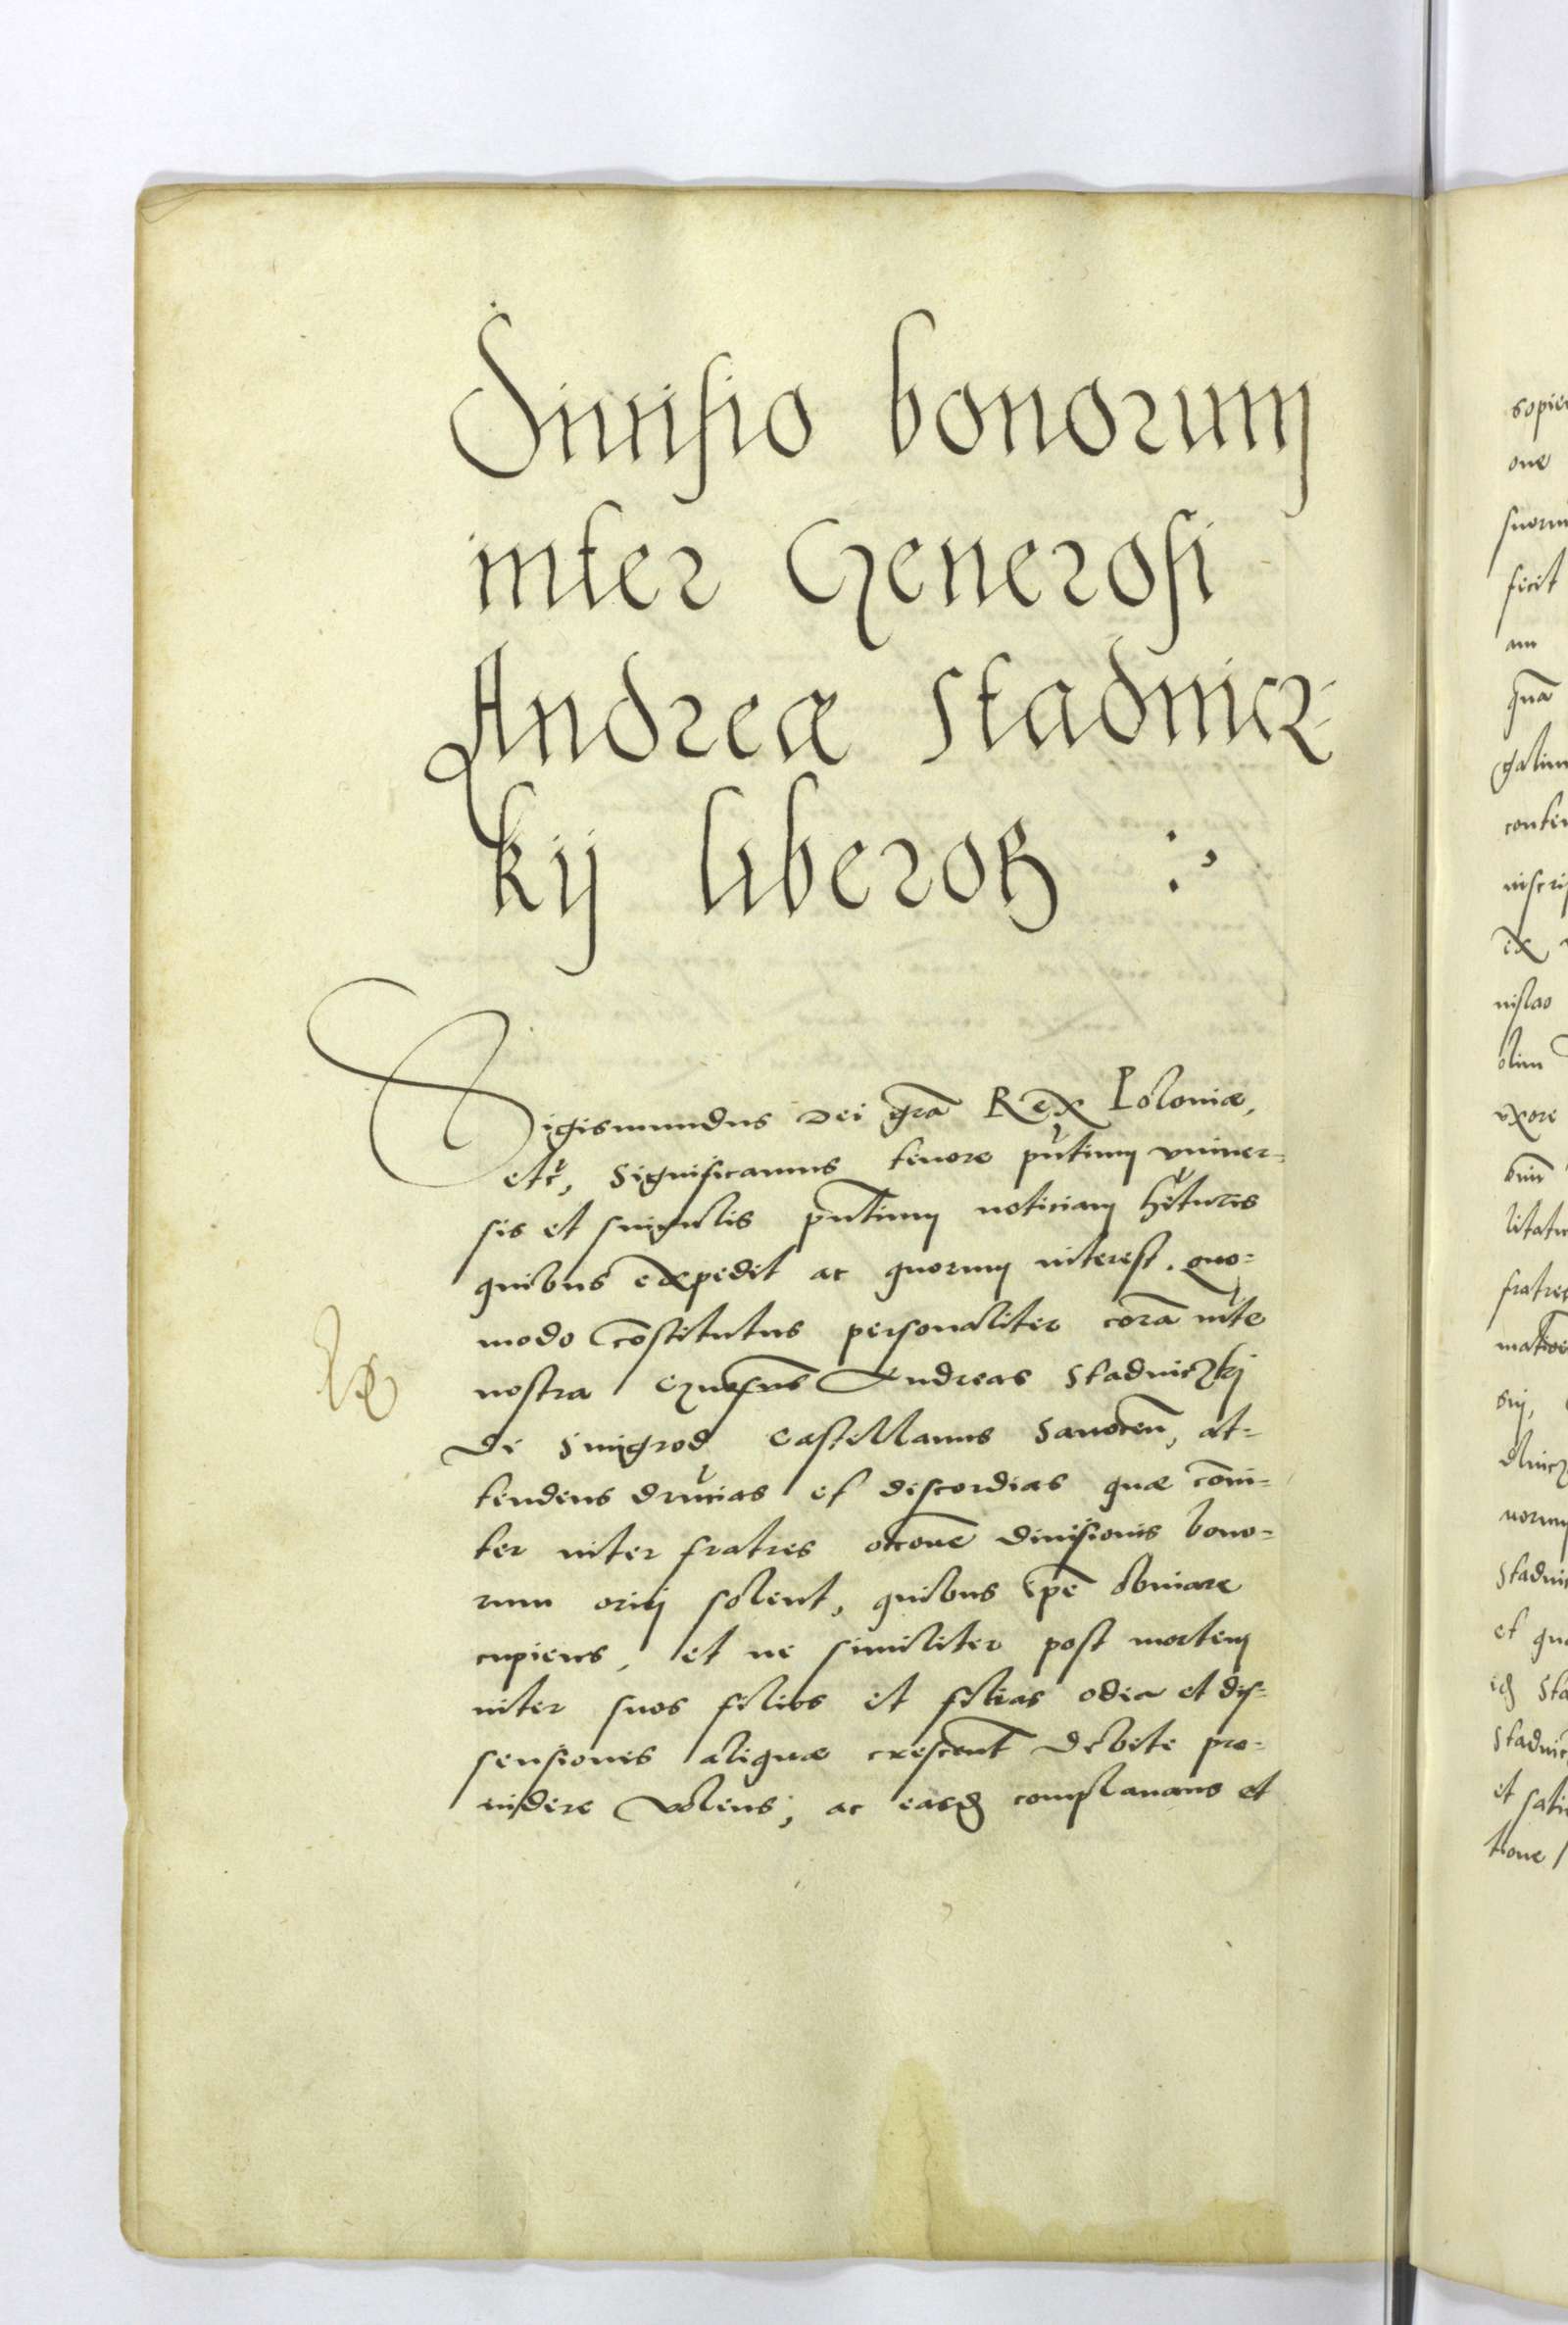 Diuisio bonorum
inter Generosi
Andreæ Stadnicz-
kij liberoꝝ
Sigismundus Dei gra̅ Rex Poloniæ,
etc̃, Significamus tenore pn̅tium vniuer-
sis et singulis pn̅tium noticiam hi̅turis
quibus expedit ac quorum interest. quo-
modo co̅stitutus personaliter cora̅ mte
nostra Gn̅osus Andreas Stadniczkj
de Smigrod Castellanus Sanocen̅, at-
tendens discordias quæ co̅iu-
ter inter fratres occo̅ne diuisionis bono-
rum oriri solent, quibus ip̅e obuiare
cupiens, et ne similiter post mortem
inter suos filios et filias odia et dis-
sensiones aliquæ crescant debite pro-
uidere volens, ac easdꝫ complanans et
sopie
one
suorum
fecit
am
qua̅
galim
conte
niscri
ex
nislao
olim
vxore
litatu
fratres
Stadni
et qu
Sta
Stadni
et sati
tione